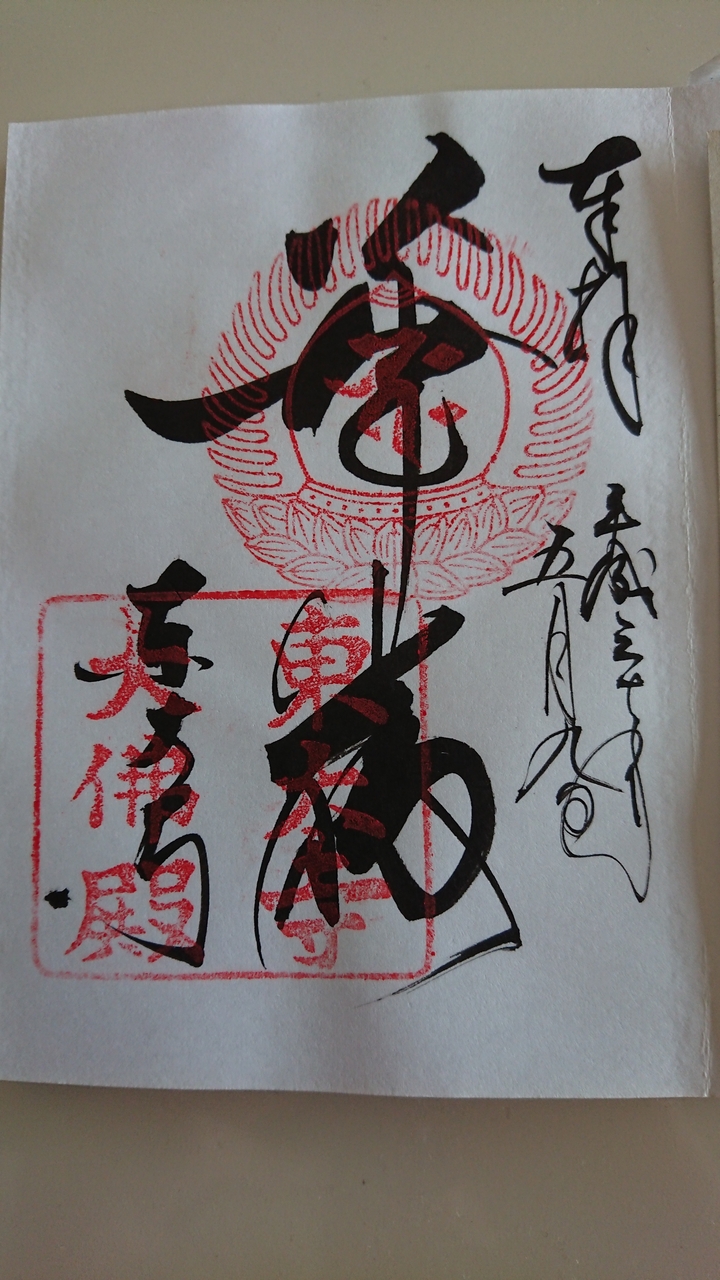 奉拝
平成三十年
五月九日
華嚴
東大寺
東大寺
大佛殿